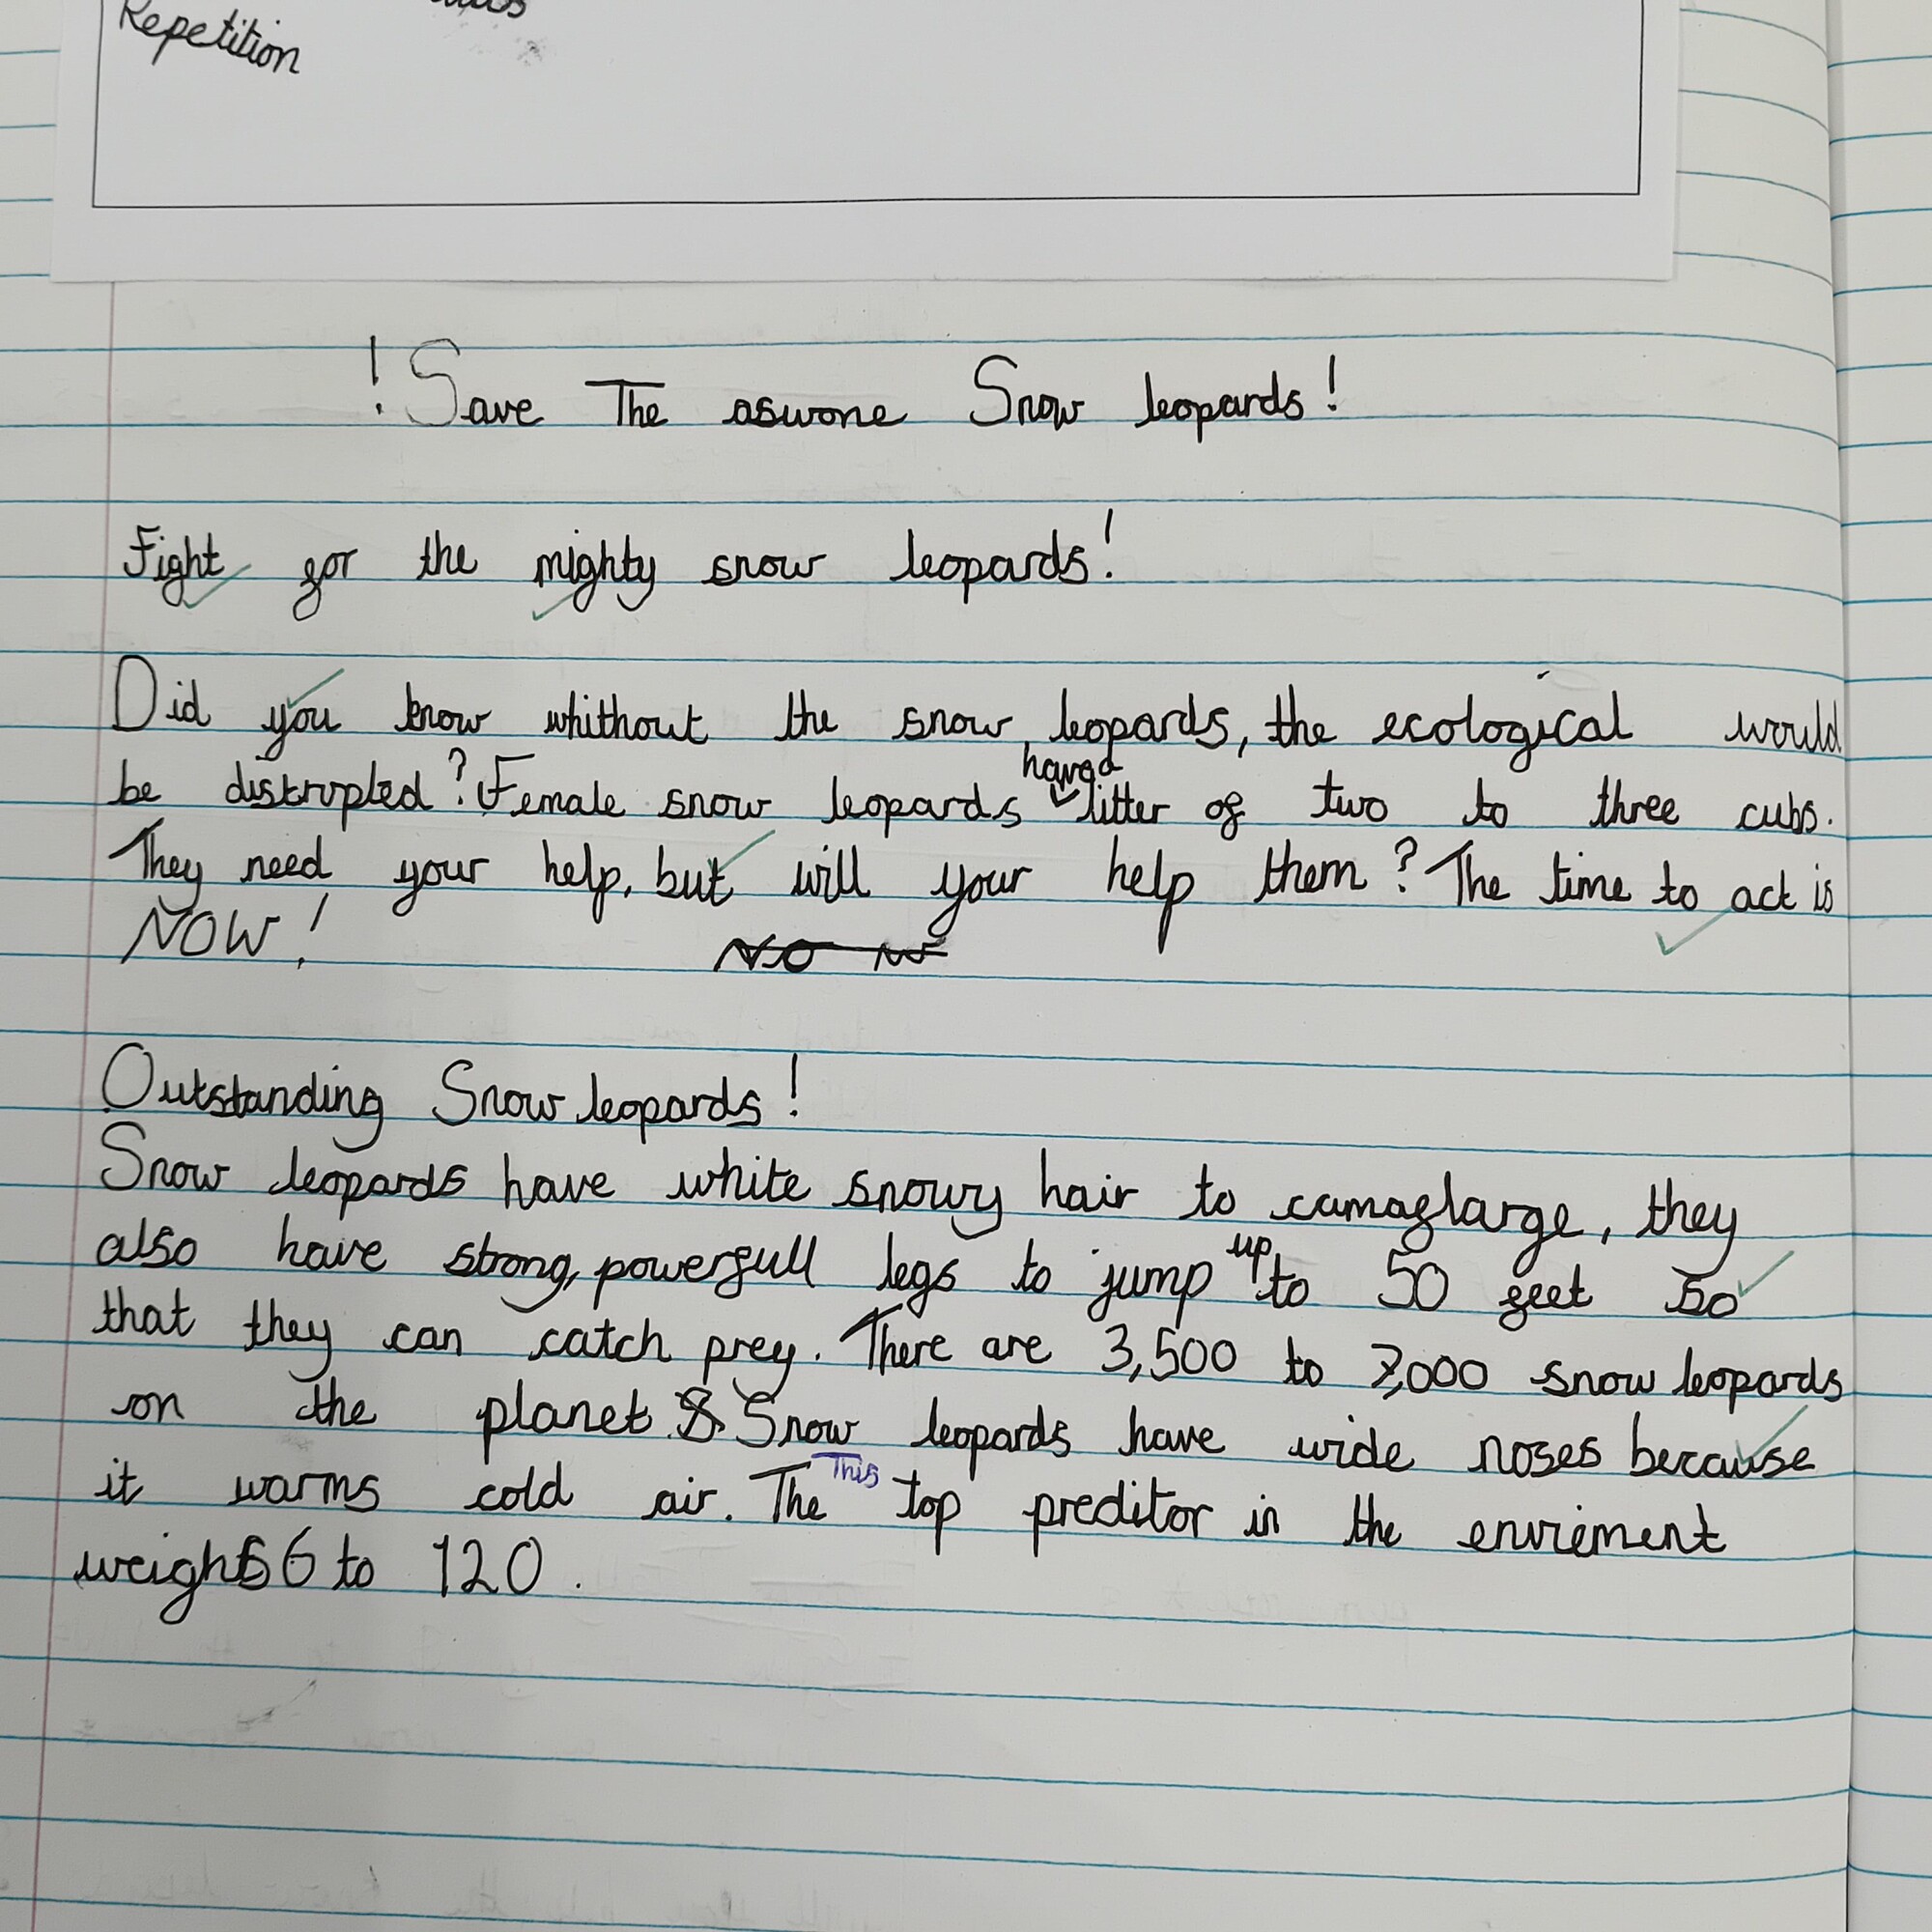 Repetition
! Save The aswone Snow leopards!
Fight for the mighty snow leopards!
Did you know whithout the snow leopards, the ecological would
have a
be distrupted? Female snow leopards litter of two to three cubs.
They need your help, but will your help them? The time to act is
NOW!
Outstanding Snow leopards!
Snow leopards have white snowy hair to camaflarge, they
up
also have strong, powerfull legs to jump to 50 feet so
that they can catch prey. There are 3,500 to 7,000 snow leopards
on the planet. Snow leopards have wide noses because
This
it warms cold air. The top preditor in the enviriment
weighs 6 to 120.